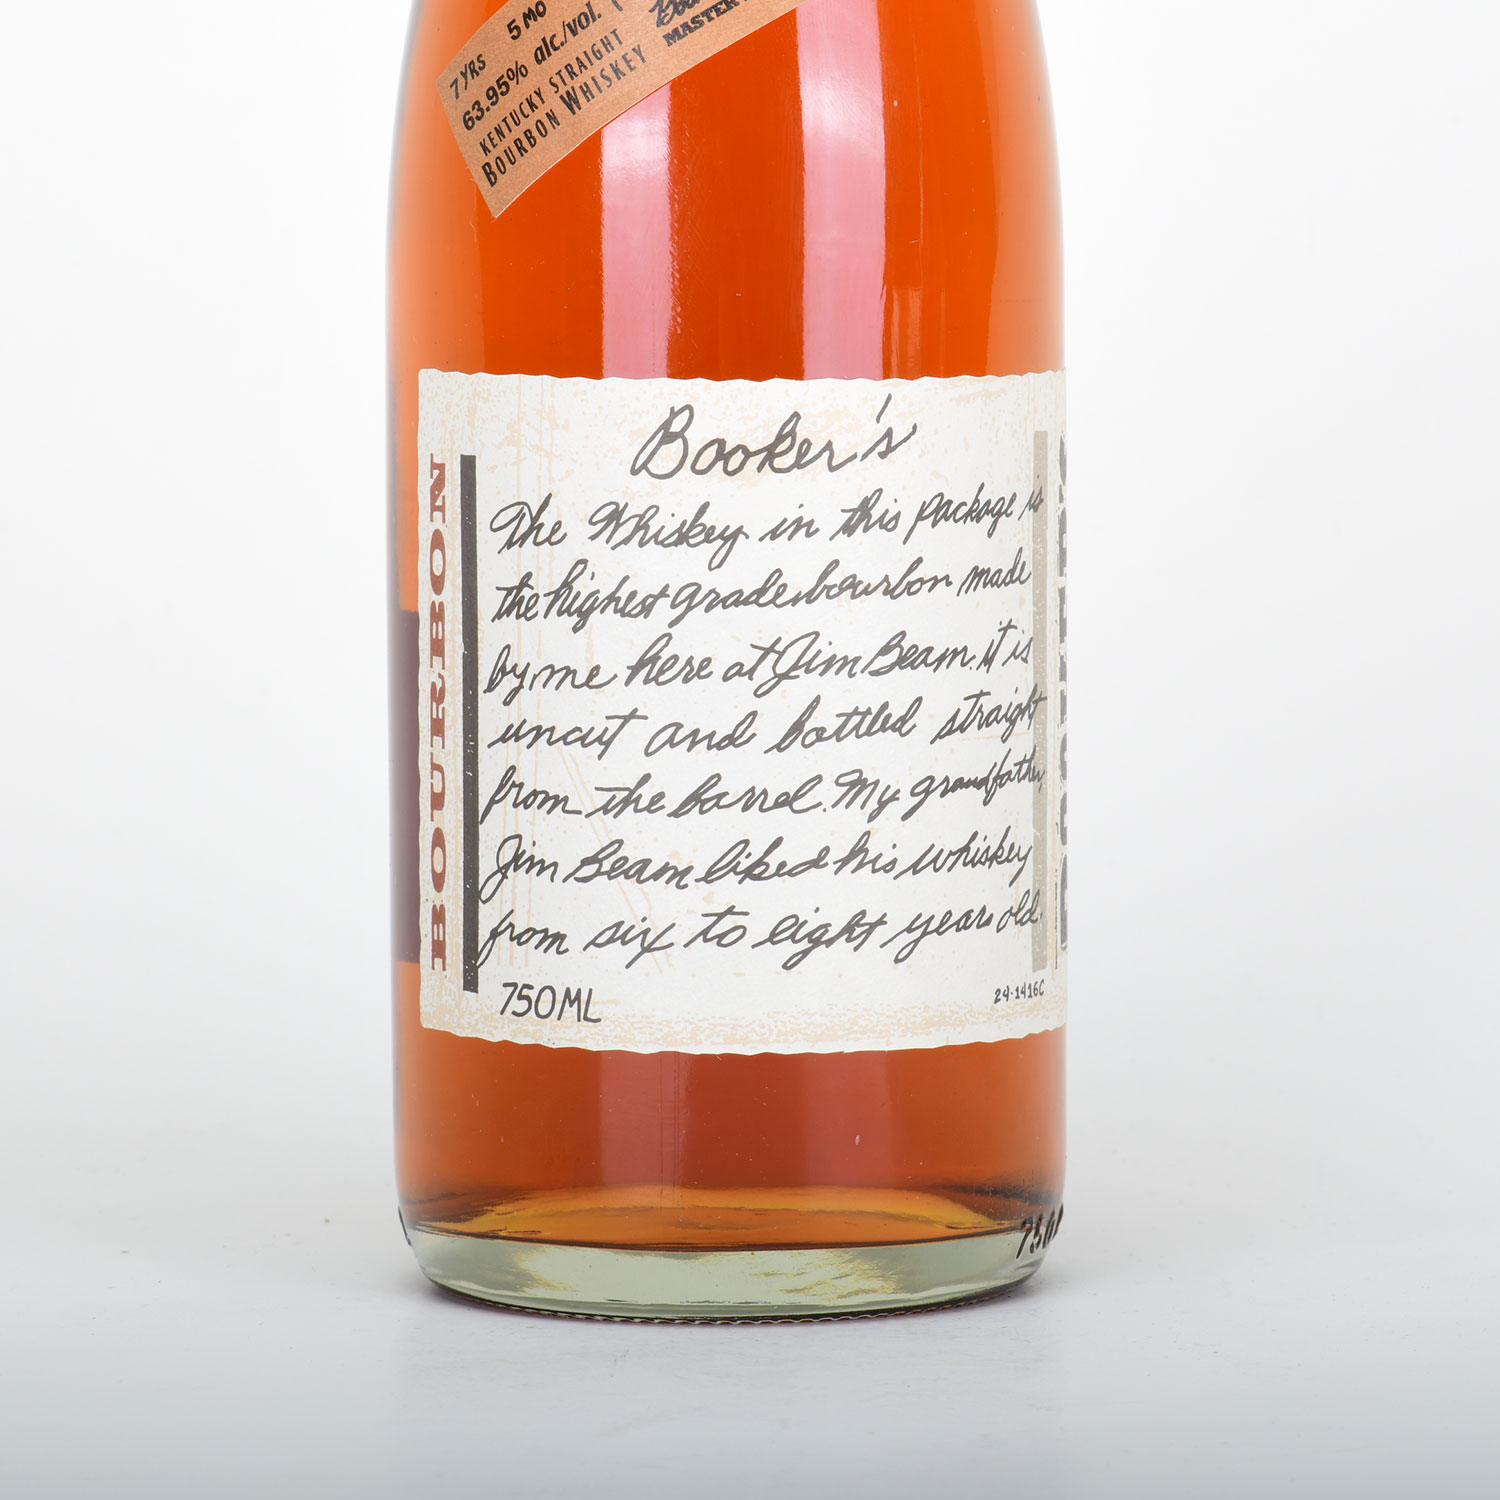 7 YRS 5 MO
63.95% alc./vol. (
KENTUCKY STRAIGHT
BOURBON WHISKEY
MASTER
BOURBON
Booker's
The Whiskey in this package is
the highest grade bourbon made
by me here at Jim Beam. it is
uncut and bottled straight
from the barrel. My grandfather,
Jim Beam liked his whiskey
from six to eight years old.
750ML
24-1416C